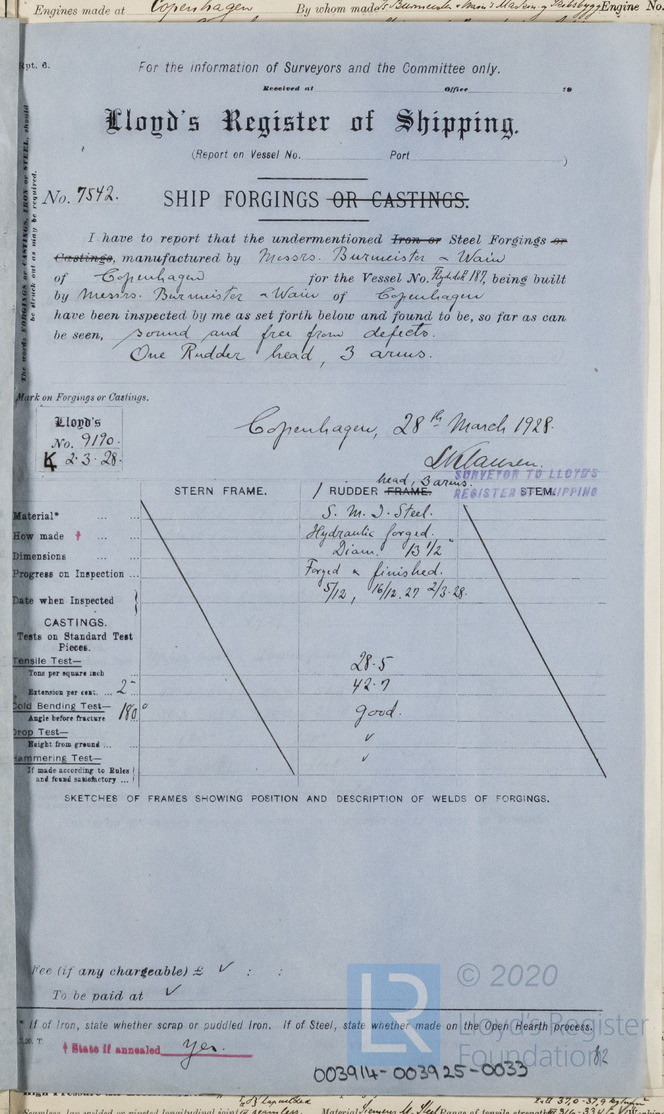 Engines made at Copenhagen By whom made Engine No.
Rpt. 6.
For the information of Surveyors and the Committee only.
Received at Office 19
Lloyd's Register of Shipping.
(Report on Vessel No. Port )
No. 7542.
SHIP FORGINGS OR CASTINGS.
The words FORGINGS or CASTINGS, IRON or STEEL, should
be struck out as may be required.
I have to report that the undermentioned Iron or Steel Forgings or
Castings, manufactured by Messrs. Burmeister & Wain
of Copenhagen for the Vessel No. 187, being built
by Messrs. Burmeister & Wain of Copenhagen
have been inspected by me as set forth below and found to be, so far as can
be seen, sound and free from defects.
One Rudder head, 3 arms.
Mark on Forgings or Castings.
Lloyd's
No. 9190.
K 2.3.28.
Copenhagen, 28th March 1928.
SURVEYOR TO LLOYD'S
REGISTER OF SHIPPING
head, 3 arms.
STERN FRAME. 1 RUDDER FRAME. STEM.
Material* S. M. I. Steel.
How made † Hydraulic forged.
Dimensions Diam. 13 1/2"
Progress on Inspection Forged & finished.
Date when Inspected 5/12, 16/12.27 2/3.28.
CASTINGS.
Tests on Standard Test
Pieces.
Tensile Test—
Tons per square inch 28.5
Extension per cent. 2" 42.7
Cold Bending Test—
Angle before fracture 180° good.
Drop Test—
Height from ground
Hammering Test—
If made according to Rules
and found satisfactory
SKETCHES OF FRAMES SHOWING POSITION AND DESCRIPTION OF WELDS OF FORGINGS.
Fee (if any chargeable) £ : :
To be paid at
* If of Iron, state whether scrap or puddled Iron. If of Steel, state whether made on the Open Hearth process.
† State if annealed yes.
LR
© 2020
Lloyd's Register
Foundation
003914-003925-0033